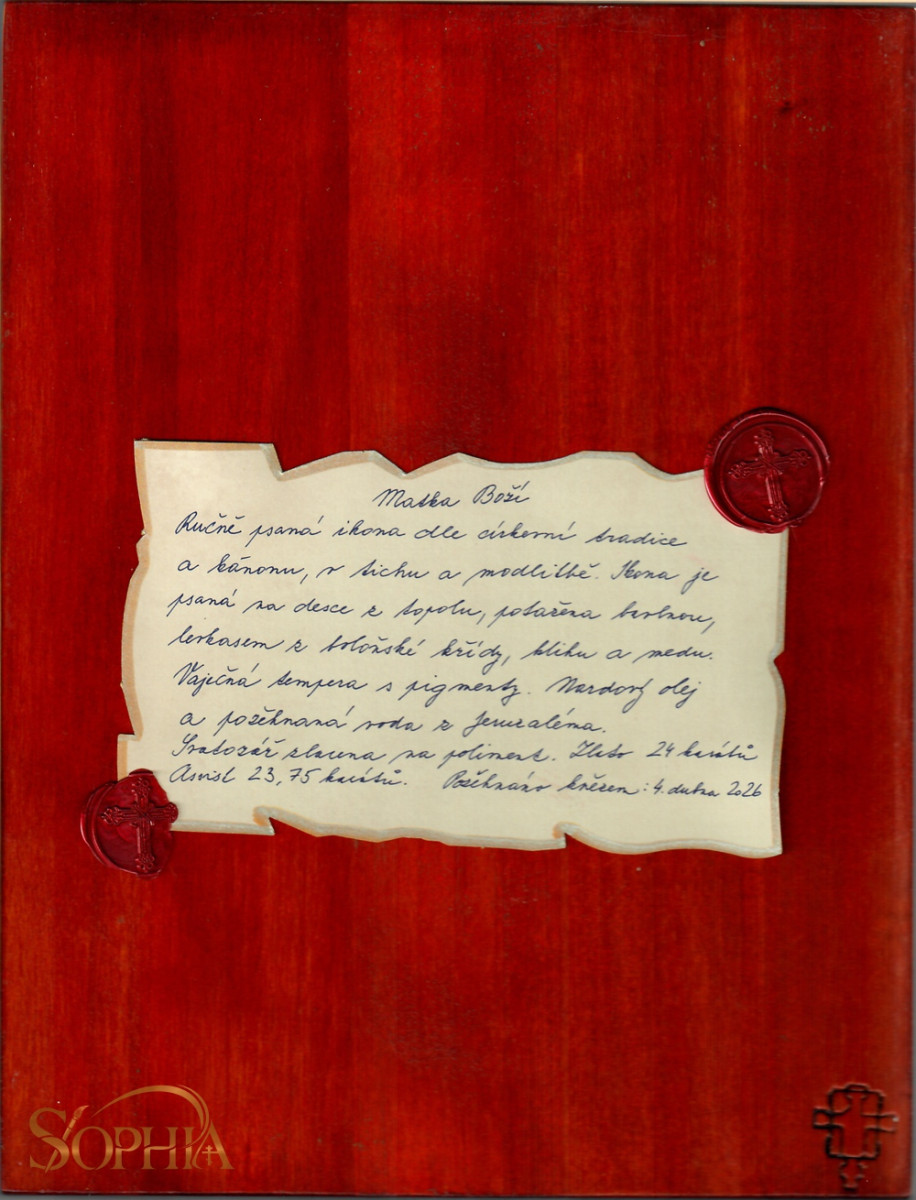 Matka Boží
Ručně psaná ikona dle církevní tradice
a kánonu, v tichu a modlitbě. Ikona je
psaná na desce z topolu, potažena bavlnou,
levkasem z boloňské křídy, klihu a medu.
Vaječná tempera s pigmenty. Nardový olej
a požehnaná voda z Jeruzaléma.
Svatozář zlacena na poliment. Zlato 24 karátů
Asist 23,75 karátů. Požehnáno knězem: 4. dubna 2026
SOPHIA